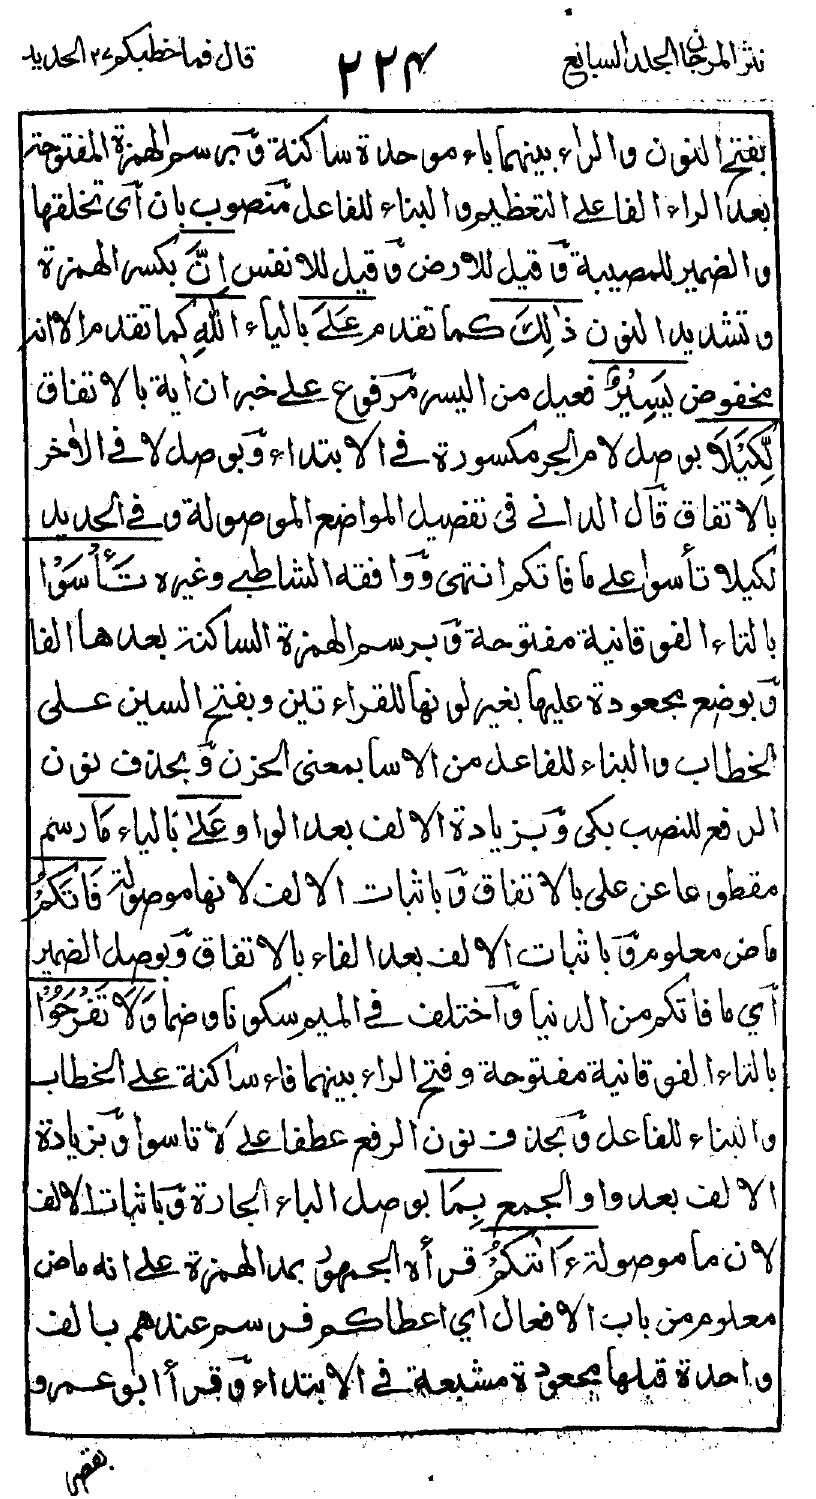 نثر المرجان المجلد السابع
٢٢٤
قال فما خطبكم ٢٧ الحديد
بفتح النون والراء بينهما باء موحدة ساكنة وبرسم الهمزة المفتوحة
بعد الراء الفا على التعظيم والبناء للفاعل منصوب بان أي تخلقها
والضمير للمصيبة وقيل للارض وقيل للانفس اِنَّ بكسر الهمزة
وتشديد النون ذٰلِكَ كما تقدم عَلَى بالياء اللّٰهِ كما تقدم الا انه
مخفوض يَسِيْرٌ فعيل من اليسر مرفوع على خبر ان اٰية بالاتفاق
لِّكَيْلَا بوصل لام الجر مكسورة في الابتداء وبوصل لا في الاٰخر
بالاتفاق قال الداني في تفصيل المواضع الموصولة وفي الحديد
لكيلا تأسوا على ما فاتكم انتهى ووافقه الشاطبي وغيره تَأْسَوْا
بالتاء الفوقانية مفتوحة وبرسم الهمزة الساكنة بعدها الفا
وبوضع مجعودة عليها بغير لونها للقراءتين وبفتح السين على
الخطاب والبناء للفاعل من الاسا بمعنى الحزن وبحذف نون
الرفع للنصب بكى وبزيادة الالف بعد الواو عَلٰى بالياء مَا رسم
مقطوعا عن على بالاتفاق وباثبات الالف لانها موصولة فَاتَكُمْ
ماض معلوم وباثبات الالف بعد الفاء بالاتفاق وبوصل الضمير
أي ما فاتكم من الدنيا واختلف في الميم سكونا وضما وَلَا تَفْرَحُوْا
بالتاء الفوقانية مفتوحة وفتح الراء بينهما فاء ساكنة على الخطاب
والبناء للفاعل وبحذف نون الرفع عطفا على لا تاسوا وبزيادة
الالف بعد واو الجمع بِمَا بوصل الباء الجارة وباثبات الالف
لان ما موصولة ءَاتٰكُمْ قرأه الجمهور بمد الهمزة على انه ماض
معلوم من باب الافعال أي اعطاكم فرسم عندهم بالف
واحدة قبلها مجعودة مشبعة في الابتداء وقرأ ابو عمرو
بقصر